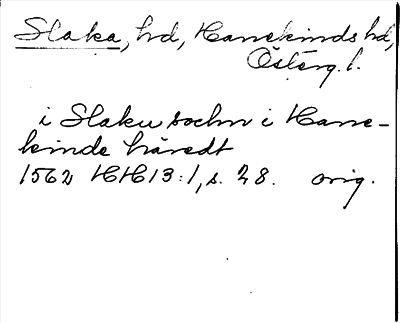 Slaka, hd, Hanekinds hd,
Österg. l.
i Slaku sochn i Hane-
kinde häredt
1562 HH13:1, s. 28. orig.